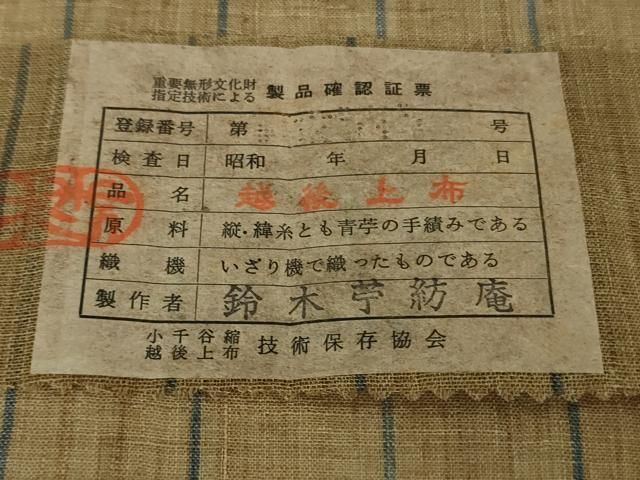 重要無形文化財
指定技術による 製品確認証票
登録番号 第 号
検査日 昭和 年 月 日
品名 越後上布
原料 縦・緯糸とも青苧の手績みである
織機 いざり機で織ったものである
製作者 鈴木苧紡庵
小千谷縮
越後上布 技術保存協会